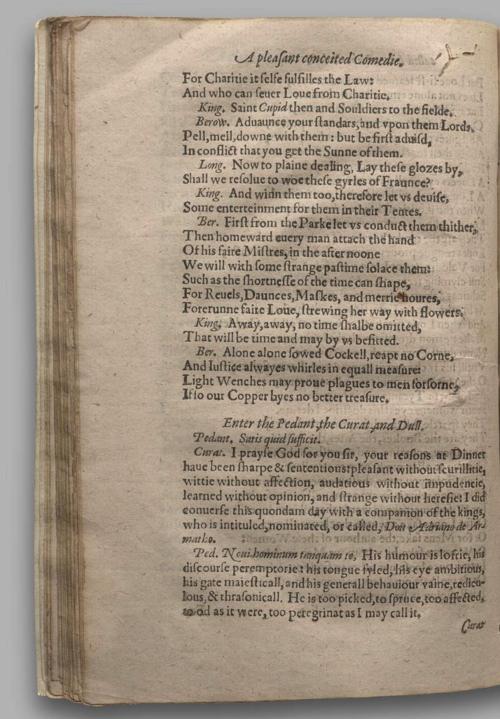 A pleasant conceited Comedie.
For Charitie it selfe fulfilles the Law:
And who can seuer Loue from Charitie.
King. Saint Cupid then and Souldiers to the fielde.
Berow. Aduaunce your standars, and vpon them Lords,
Pell, mell, downe with them: but be first aduisd,
In conflict that you get the Sunne of them.
Long. Now to plaine dealing, Lay these glozes by,
Shall we resolue to woe these gyrles of Fraunce?
King. And winn them too, therefore let vs deuise,
Some enterteinment for them in their Tentes.
Ber. First from the Parke let vs conduct them thither,
Then homeward euery man attach the hand
Of his faire Mistres, in the after noone
We will with some strange pastime solace them:
Such as the shortnesse of the time can shape,
For Reuels, Daunces, Maskes, and merrie houres,
Forerunne faire Loue, strewing her way with flowers.
King. Away, away, no time shalbe omitted,
That will be time and may by vs befitted.
Ber. Alone alone sowed Cockell, reapt no Corne,
And Iustice alwayes whirles in equall measure:
Light Wenches may proue plagues to men forsorne,
If so our Copper byes no better treasure.
Enter the Pedant, the Curat, and Dull.
Pedant. Satis quid sufficit.
Curat. I prayse God for you sir, your reasons at Dinner
haue been sharpe & sententious: pleasant without scurillitie,
wittie without affection, audatious without impudencie,
learned without opinion, and strange without heresie: I did
conuerse this quondam day with a companion of the kings,
who is intituled, nominated, or called, Don Adriano de Ar-
matho.
Ped. Noui hominum tanquam te, His humour is loftie, his
discourse peremptorie: his tongue fyled, his eye ambitious,
his gate maiesticall, and his generall behauiour vaine, redicu-
lous, & thrasonicall. He is too picked, to spruce, too affected,
to od as it were, too peregrinat as I may call it.
Curat